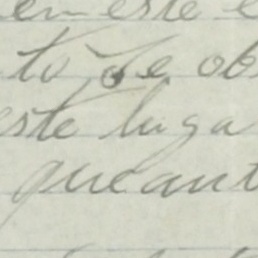 en este e
to, se ob
este luga
que ant